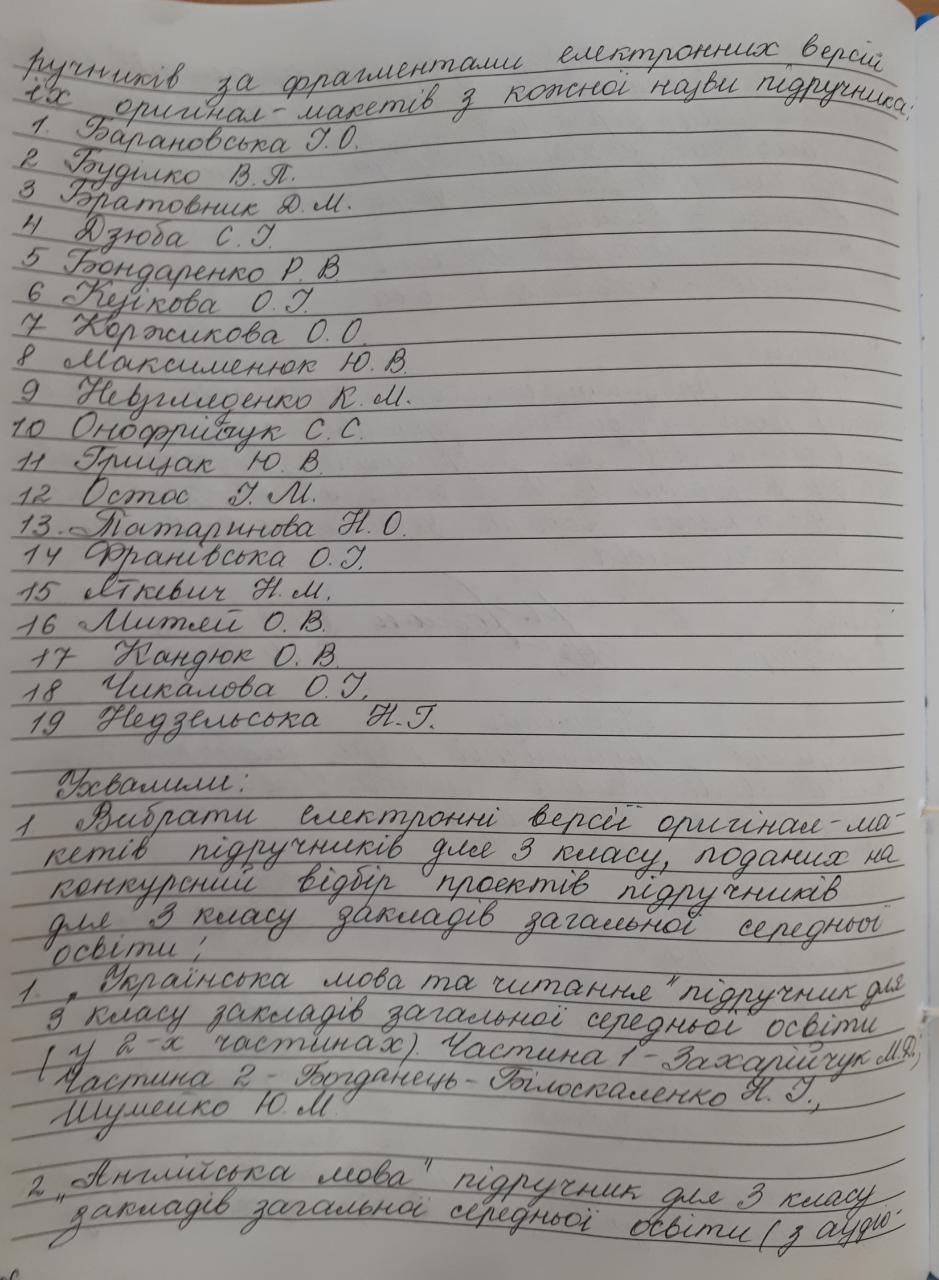 ручників за фрагментами електронних версій
їх оригінал-макетів з кожної назви підручника:
1. Барановська І.О.
2 Буділко В.П.
3 Братовник Д.М.
4 Дзюба С.І.
5 Бондаренко Р.В
6 О.І.
7 Коржикова О.О.
8 Максименюк Ю.В.
9 Невгляденко К.М.
10 Онофрійчук С.С.
11 Грицак Ю.В.
12 Остос І.М.
13. Татаринова Н.О.
14 Франівська О.І.
15 Яткевич Н.М.
16 Митлей О.В.
17 Кандюк О.В.
18 Чикалова О.І.
19 Недзельська Н.Г.
Ухвалили:
1 Вибрати електронні версії оригінал-ма-
кетів підручників для 3 класу, поданих на
конкурсний відбір проєктів підручників
для 3 класу закладів загальної середньої
освіти:
1. „Українська мова та читання" підручник для
3 класу закладів загальної середньої освіти
(у 2-х частинах). Частина 1 - Захарійчук М.Д.,
Частина 2 - Богданець-Білоскаленко Н.І.,
Шумейко Ю.М.
2 „Англійська мова" підручник для 3 класу
закладів загальної середньої освіти (з аудіо-